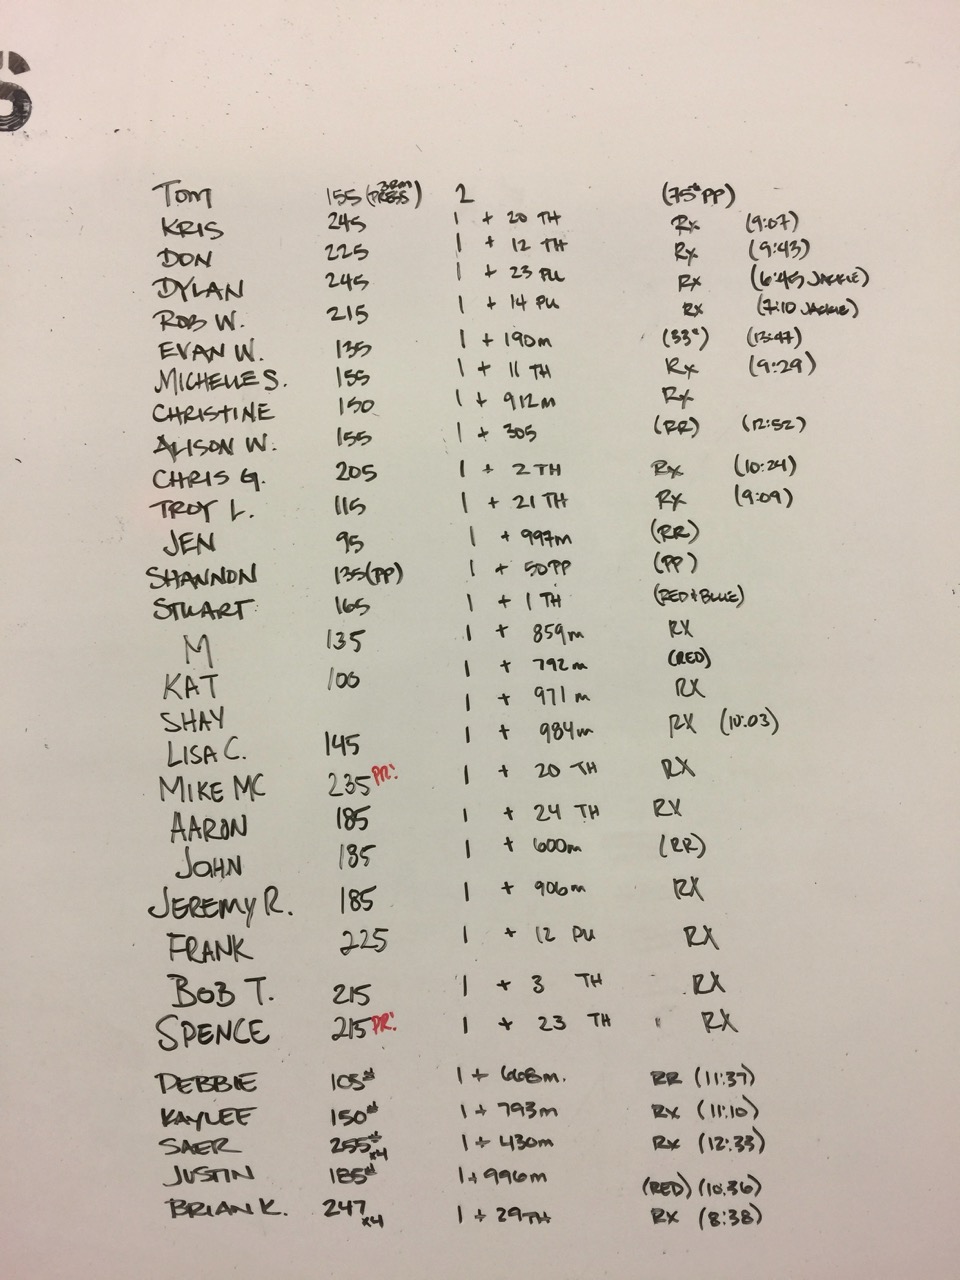 S
TOM 155 (3RM PRESS) 2 (75# PP)
KRIS 245 1 + 20 TH Rx (9:07)
DON 225 1 + 12 TH Rx (9:43)
DYLAN 245 1 + 23 PU Rx (6:45 JACKIE)
ROB W. 215 1 + 14 PU Rx (7:10 JACKIE)
EVAN W. 135 1 + 190m (33#) (13:47)
MICHELLE S. 155 1 + 11 TH Rx (9:29)
CHRISTINE 150 1 + 912m Rx
ALISON W. 155 1 + 305 (RR) (12:52)
CHRIS G. 205 1 + 2 TH Rx (10:24)
TROY L. 115 1 + 21 TH Rx (9:09)
JEN 95 1 + 997m (RR)
SHANNON 135(PP) 1 + 50PP (PP)
STUART 165 1 + 1 TH (RED + BLUE)
M 135 1 + 859m RX
KAT 100 1 + 792m (RED)
SHAY 1 + 971m RX
LISA C. 145 1 + 984m RX (10:03)
MIKE MC 235 PR! 1 + 20 TH RX
AARON 185 1 + 24 TH RX
JOHN 185 1 + 600m (RR)
JEREMY R. 185 1 + 906m RX
FRANK 225 1 + 12 PU RX
BOB T. 215 1 + 3 TH RX
SPENCE 215 PR! 1 + 23 TH RX
DEBBIE 105# 1 + 668m. RR (11:37)
KAYLEE 150# 1 + 793m Rx (11:10)
SAER 255# x4 1 + 430m Rx (12:33)
JUSTIN 185# 1 + 996m (RED) (10:36)
BRIAN K. 247 x4 1 + 29TH Rx (8:38)